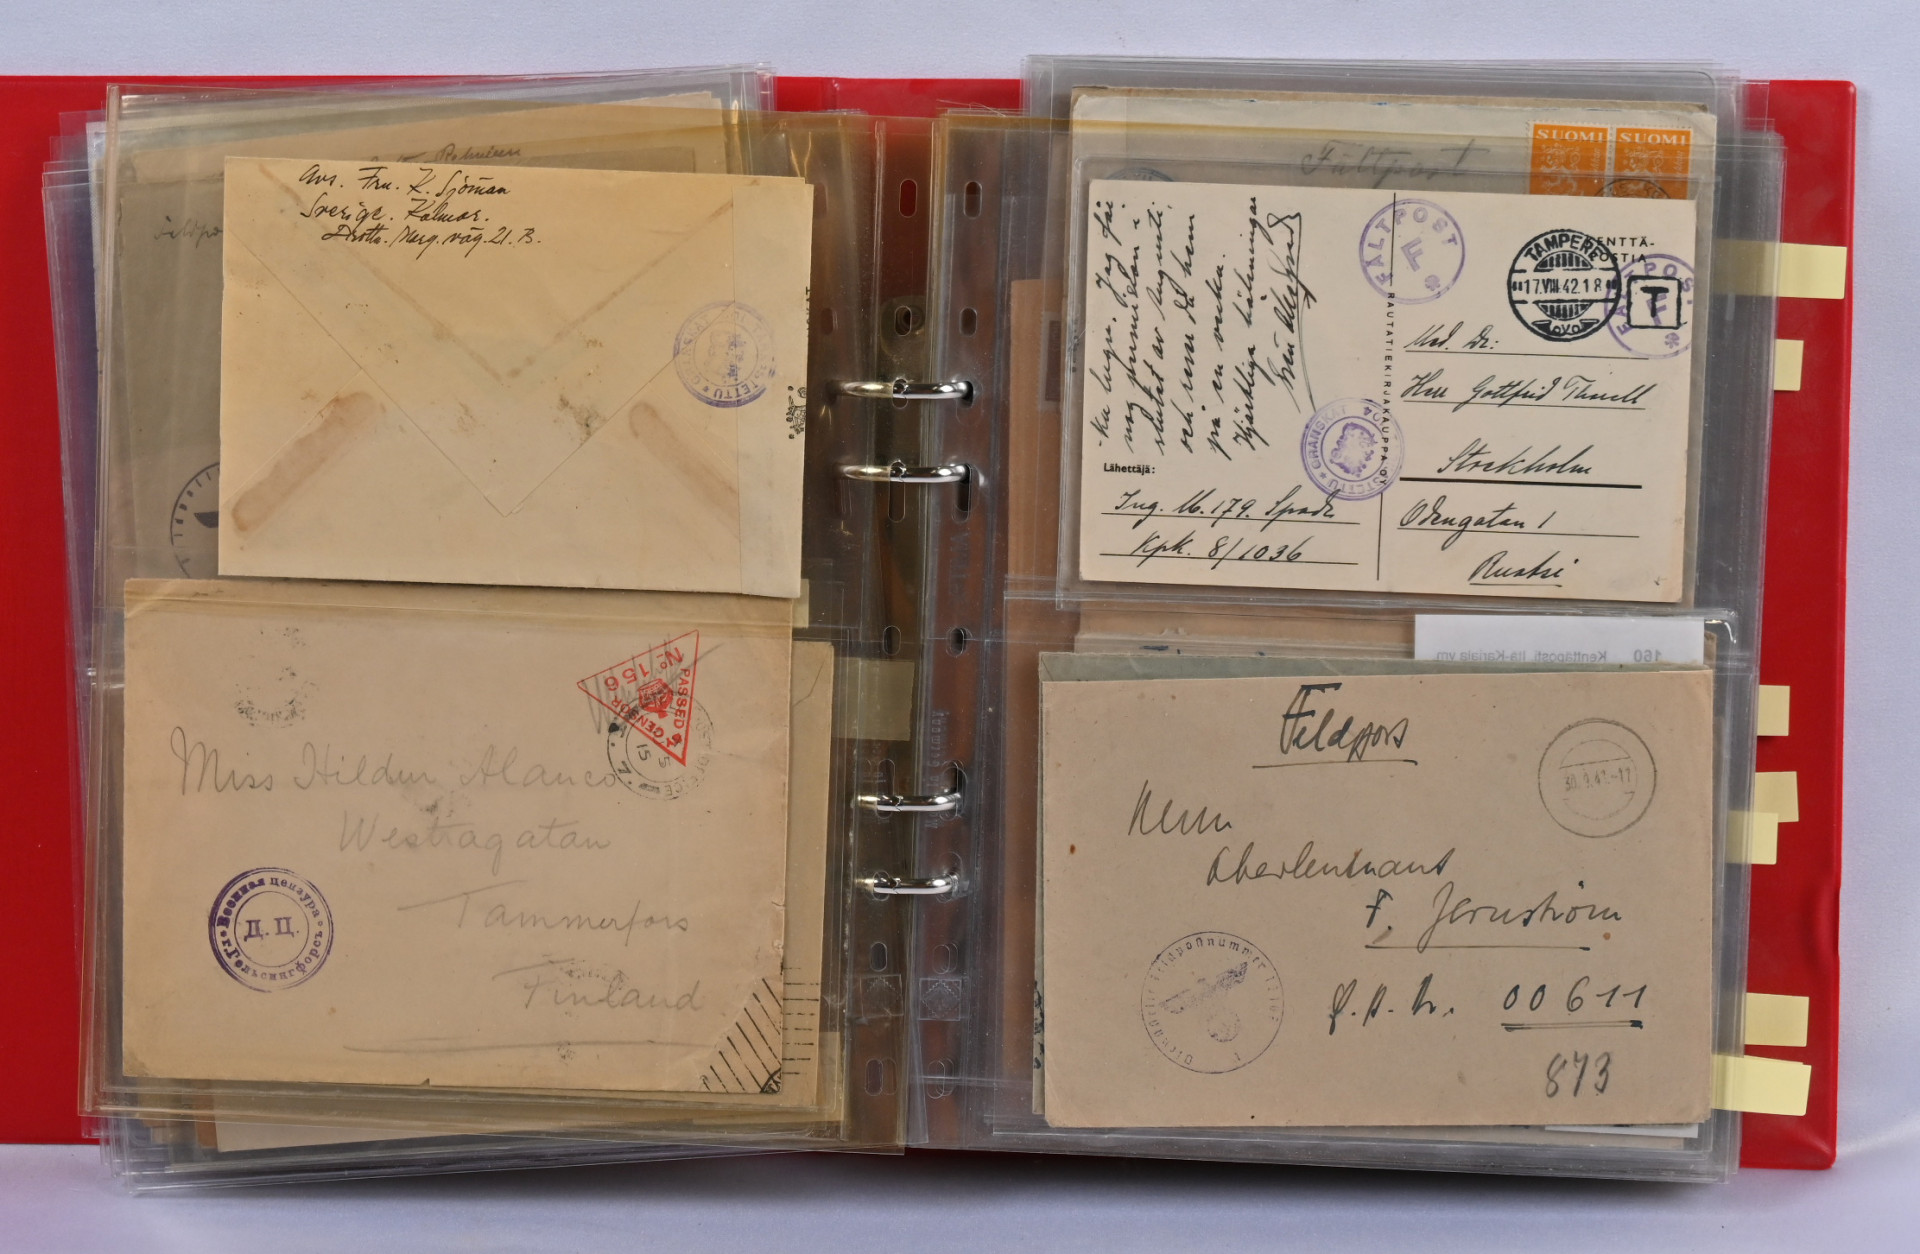 Avs. Fru. K. Sjöman
Sverige. Kalmar.
Drottn. Marg. väg. 21. B.
Fältpost
SUOMI
SUOMI
ka lugn. Jag får
slutet av Augusti,
och reser då hem
på en vecka.
Hjärtliga hälsningar
Lähettäjä:
Ing. M. 179. Spade
Kpk. 8/1036
RAUTATIEKIRJAKAUPPA OY
FÄLTPOST
F
KENTTÄ-
POSTIA
TAMPERE
17.VIII.42.18
T
GRANSKAT
Med. Dr:
Herr Gottfrid Thorell
Stockholm
Odengatan 1
Ruotsi
PASSED BY CENSOR
No 156
Miss Hildur Alanco
Westragatan
Tammerfors
Finland
Военная цензура
Д. Ц.
г. Гельсингфорсъ
160 Kenttäposti Itä-Karjala ym
Feldpost
30.9.41.-17
Herrn
Oberleutnant
F. Jernström
F.P.N. 00611
873